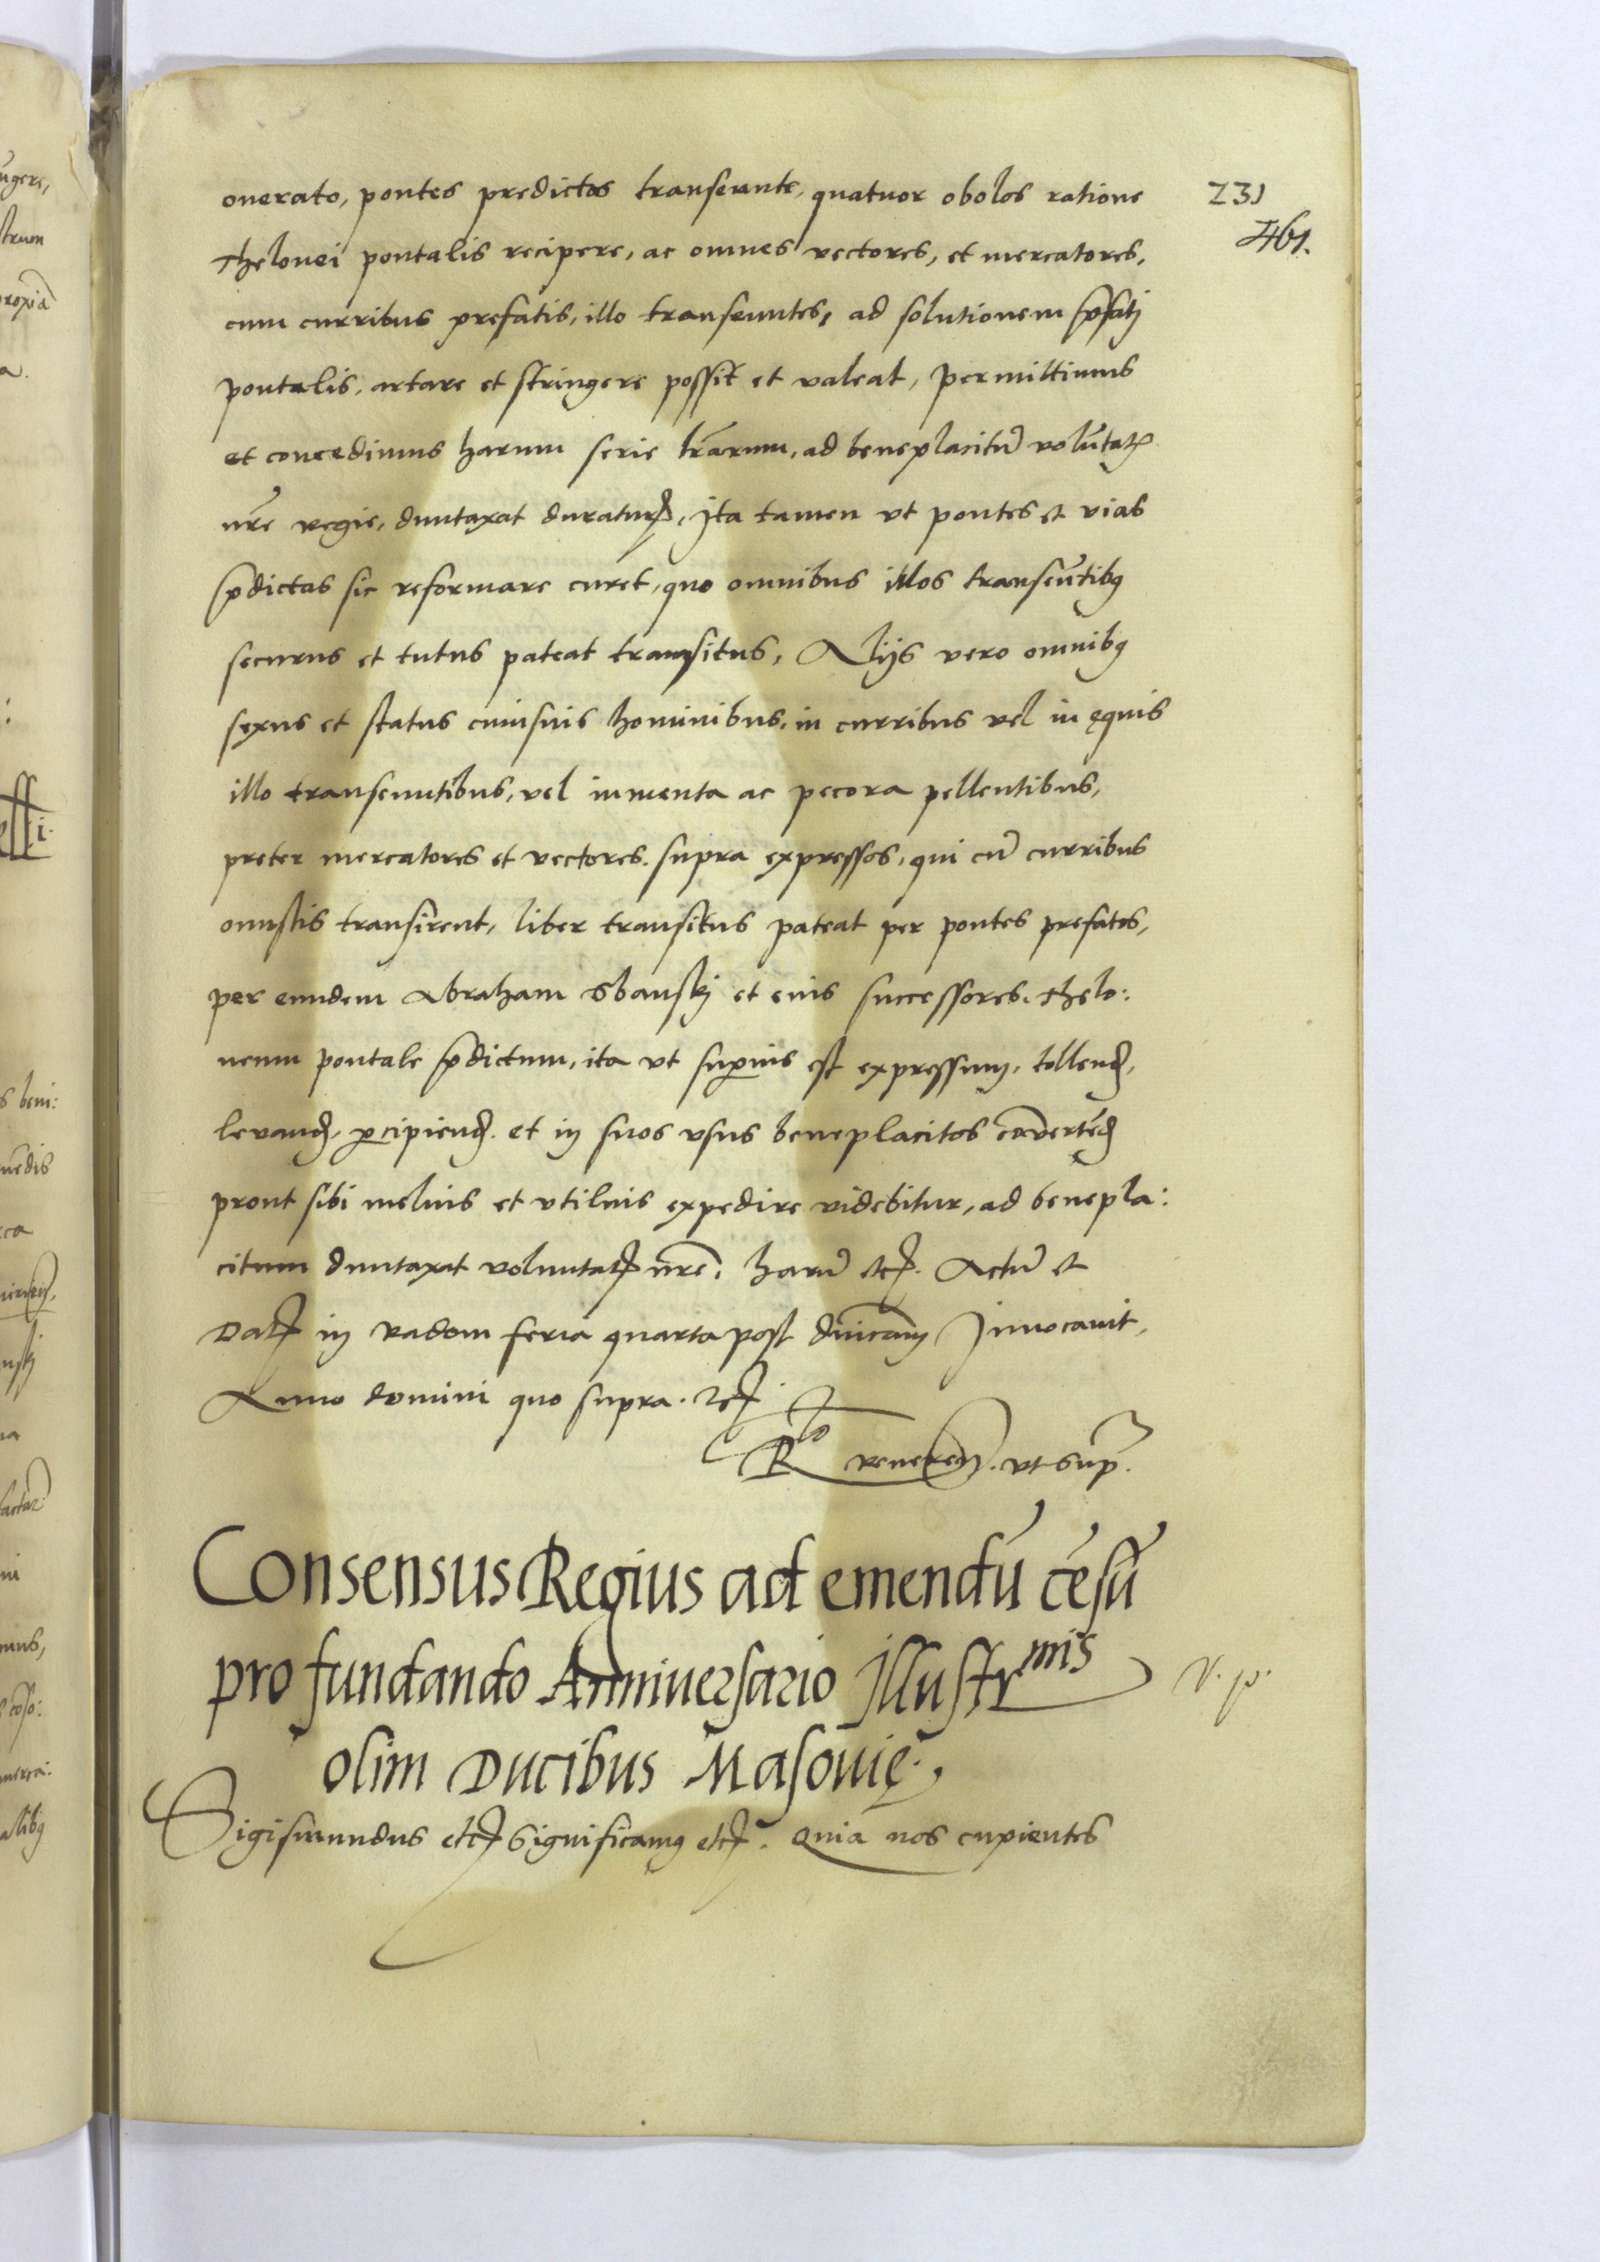 onerato, pontes predictos transeunte, quatuor obolos ratione
231
461.
Thelonei pontalis recipere, ac omnes vectores, et mercatores,
cum curribus prefatis, illo transeuntes, ad solutionem p̄fati
pontalis, artare et stringere possit et valeat, permittimus
et concedimus harum serie l̄rarum, ad beneplacitū volūtatis
nr̄e regie, duntaxat duraturum, Ita tamen vt pontes et vias
p̄dictas sic reformare curet, quo omnibus illos transeūtibus
securus et tutus pateat transitus, Alijs vero omnibus
sexus et status cuiusuis hominibus, in curribus vel in equis
illo transeuntibus, vel iumenta ac pecora pellentibus,
preter mercatores et vectores supra expressos, qui cū curribus
onustis transirent, liber transitus pateat per pontes prefatos,
per eundem Abraham Sbanskj et eius successores. Thelo:
neum pontale p̄dictum, ita vt superius est expressum, tollend,
levand, percipiend. et in suos vsus beneplacitos convertēd
prout sibi melius et vtilius expedire videbitur, ad benepla:
citum duntaxat voluntatis nr̄e. harū etc. Actū et
Dat in Radom feria quarta post dn̄icam Inuocauit,
Anno domini quo supra. etc
Rlo reveren. vt sup.
Consensus Regius ad emendū cēsū
pro fundando Anniuersario Illustrmis
v. p.
olim Ducibus Masouię.
Sigismundus etc Significamus etc. Quia nos cupientes